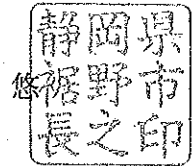 静岡県
裾野市
長之印
悠